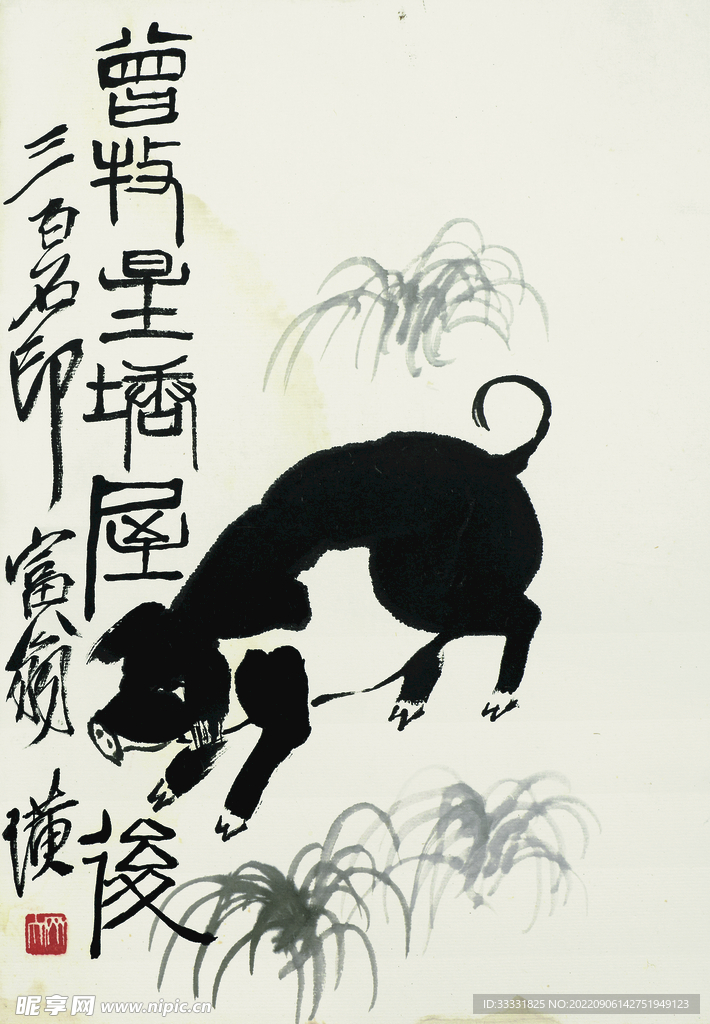 曾牧星塘屋後
三百石印富翁璜
昵享网 www.nipic.cn
ID:33331825 NO:20220906142751949123